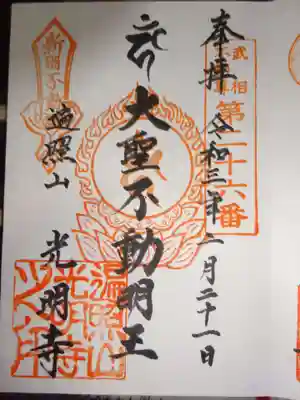 奉拝
令和三年二月二十一日
武相
第二十六番
大聖不動明王
遍照山
光明寺
遍照山
光明寺
之印